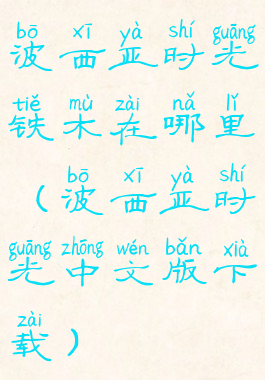 bō xī yà shí guāng
波西亚时光
tiě mù zài nǎ lǐ
铁木在哪里
bō xī yà shí
(波西亚时
guāng zhōng wén bǎn xià
光中文版下
zài
载)